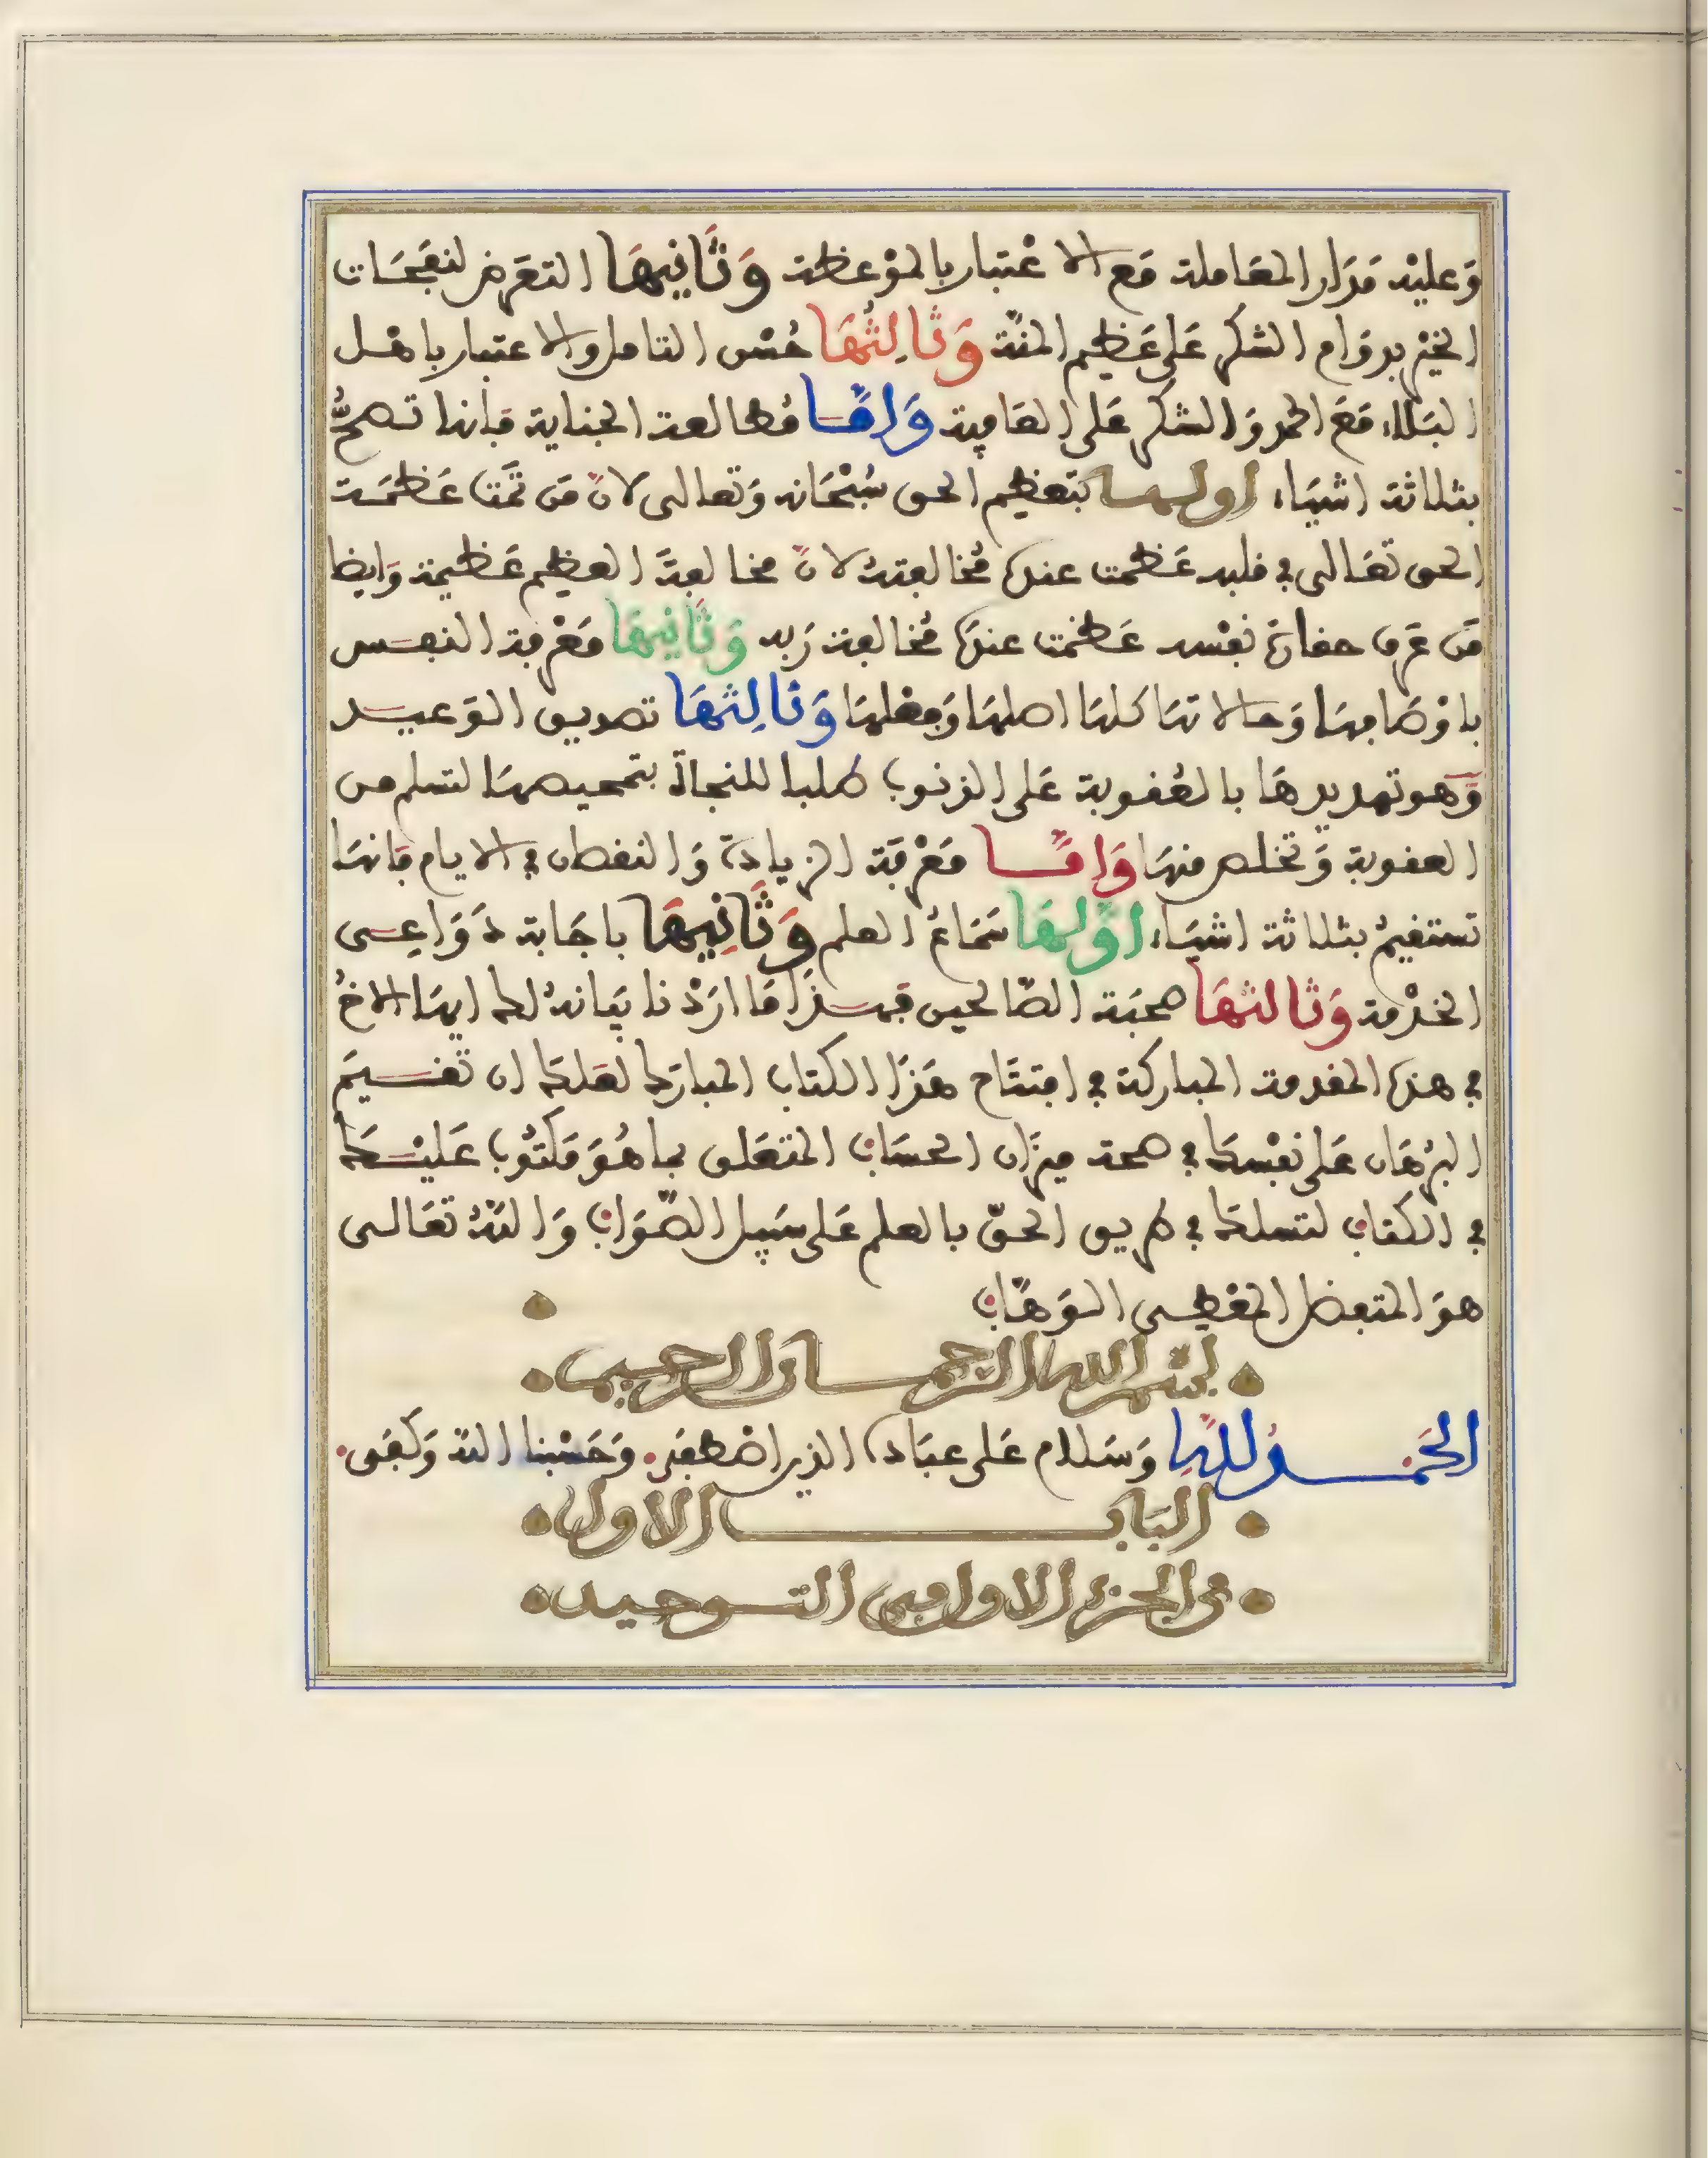 وَعليْه مَدَار المعَاملة مَع الاعْتبار بالموْعظة وَثَانِيهَا التعَرض لنفَحَات
الخيْر بدوَام الشكر عَلى عَظيم المنّة وَثَالِثُهَا حُسْن التامل والاعتبار باهْل
البَلاء مَعَ الحمد وَالشكر عَلى العَافية وَامَّا مُطالعة الجناية فإنها تصحُّ
بثلاثة اشيَاء اولها بتعظيم الحق سُبْحَانه وَتعالى لانّ مَن تمّت عَظمَة
الحق تعَالى في قلبه عَظمت عنده مُخالفتهُ لانّ مخالفة العظيم عَظيمة وَايضا
مَن عَرف حقارة نفْسه عَظمت عنده مُخالفة رَبه وَثَانِيهَا مَعْرفة النفس
باوْصَافهَا وَحالاتهَا كلهَا اصلهَا وَفعْلهَا وَثَالِثهَا تصديق الوَعيد
وَهو تهديدهَا بالعُقوبة عَلى الذنوب طلبا للنجاة بتمحيصهَا لتسلم من
العقوبة وَتخلص منهَا وَامَّا مَعْرفَة الزيادة وَالنقصان في الايام فإنهَا
تستقيمُ بثلاثة اشيَاء اوَّلهَا سَمَاعُ العلم وَثَانِيهَا باجَابة دَوَاعِى
الخدْمة وَثَالثهَا صحبَة الصّالحين فهذَا مَا ارَدْنا بيَانهُ لك ايهَا الاخُ
في هذه المقدمة المباركة في افتتَاح هَذَا الكتاب المبارَك لعَلكَ ان تقسيمَ
البرْهَان عَلى نفْسكَ في صحة ميزَان الحسَاب المتعَلق بما هُوَ مَكتُوب عَليْكَ
في الكتاب لتسلكَ في طريق الحقّ بالعلم عَلى سَبيل الصّوَاب وَاللهُ تعَالى
هوَ المتفضل المعْطى الوَهّاب
بسْم الله الرّحمان الرحيم
الحَمْدُ للهِ وَسَلام عَلى عبَاده الذين اصْطفَى وَحَسْبنا الله وَكفَى
البَاب الاول
في الجزء الاول في التوحيد